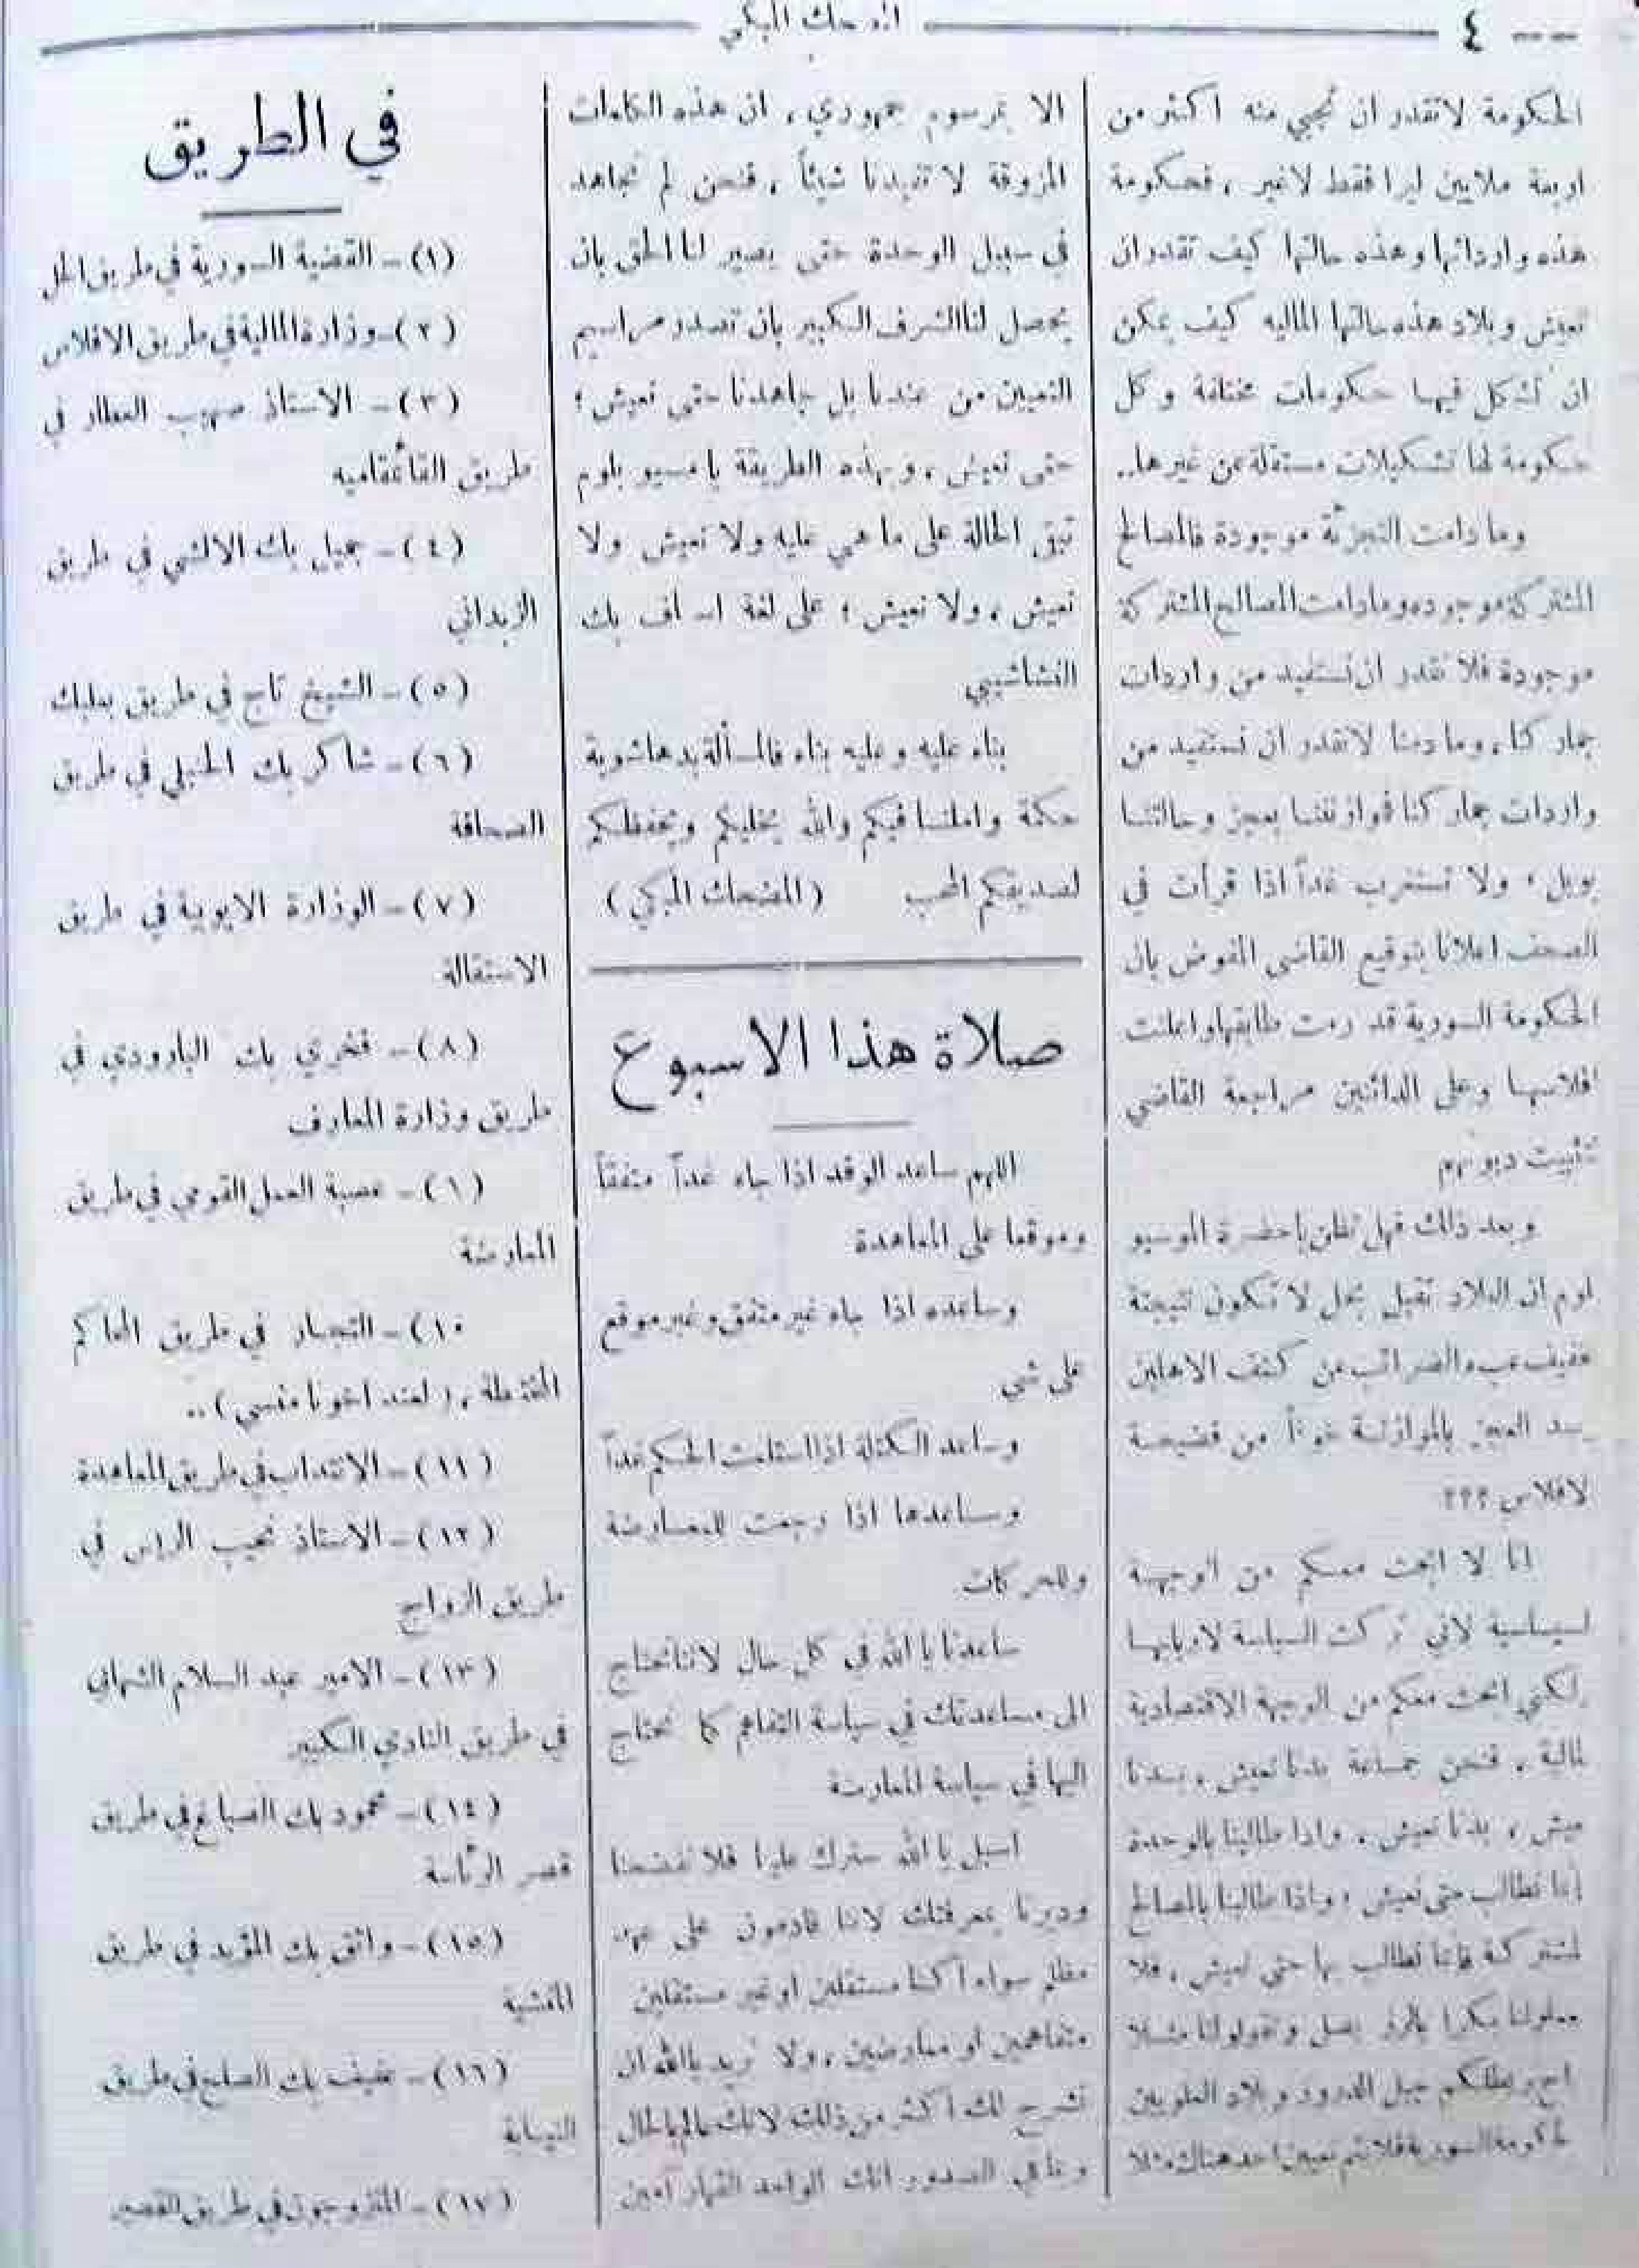 ٤
المضحك المبكي
الحكومة لا تقدر ان تجبي منه اكثر من
اربعة ملايين ليرا فقط لا غير ، فحكومة
هذه وارداتها وهذه حالتها كيف تقدر ان
تعيش وبلاد هذه حالتها الماليه كيف يمكن
ان تشكل فيها حكومات مختلفة وكل
حكومة لها تشكيلات مستقلة عن غيرها..
وما دامت التجزئة موجودة فالمصالح
المشتركة موجوده وما دامت المصالح المشتركة
موجودة فلا نقدر ان نستفيد من واردات
جماركنا ، وما دمنا لا نقدر ان نستفيد من
واردات جماركنا فموازنتنا بعجز وحالتنا
بويل ، ولا تستغرب غداً اذا قرأت في
الصحف اعلانا بتوقيع القاضي المفوض بان
الحكومة السورية قد رمت طابقها واعلنت
افلاسها وعلى الدائنين مراجعة القاضي
تثبيت ديونهم
وبعد ذلك فهل تظن يا حضرة الموسيو
لوم ان البلاد تقبل بحل لا تكون نتيجته
خفيف عبء الضرائب عن كتف الاهلين
سد العجز بالموازنة خوفاً من فضيحة
لافلاس ؟؟؟
انا لا ابحث معكم من الوجهة
لسياسية لاني تركت السياسة لاربابها
لكني ابحث معكم من الوجهة الاقتصادية
المالية . فنحن جماعة بدنا نعيش ، بدنا
عيش ، بدنا نعيش . واذا طالبنا بالوحدة
انما نطالب حتى نعيش ، واذا طالبنا بالمصالح
لمشتركة فاننا نطالب بها حتى نعيش ، فلا
بصل وتقولوا لنا مثلا
جبل الدروز وبلاد العلويين
لحكومة السورية فلا يتم تعيين احد هناك مثلا
الا بمرسوم جمهوري ، ان هذه الكلمات
المزوقة لا تفيدنا شيئاً ، فنحن لم نجاهد
في سبيل الوحدة حتى يصير لنا الحق بان
يحصل لنا الشرف الكبير بان تصدر مراسيم
التعيين من عندنا بل جاهدنا حتى نعيش ؛
حتى نعيش ، وبهذه الطريقة يا مسيو بلوم
تبقى الحالة على ما هي عليه ولا نعيش ولا
نعيش ، ولا نعيش ؛ على لغة اسعاف بك
النشاشيبي
بناء عليه وعليه بناء فالمسألة بدها شوية
حكمة واملنا فيكم والله يخليكم ويحفظكم
لصديقكم المحب (المضحك المبكي)
صلاة هذا الاسبوع
اللهم ساعد الوفد اذا جاء غداً متفقاً
وموقعا على المعاهدة
وساعده اذا جاء غير متفق وغير موقع
على شي
وساعد الكتلة اذا استلمت الحكم غداً
وساعدها اذا رجعت للمعارضة
وللحركات
ساعدنا يا الله في كل حال لاننا نحتاج
الى مساعدتك في سياسة التفاهم كما نحتاج
اليها في سياسة المعارضة
اسبل يا الله سترك علينا فلا تفضحنا
ودبرنا بمعرفتك لاننا قادمون على عهد
مظلم سواء اكنا مستقلين او غير مستقلين
متفاهمين او معارضين ، ولا نريد يا الله ان
نشرح لك اكثر من ذلك لانك عالم بالحال
وبما في الصدور انك الواحد القهار امين
في الطريق
(١) – القضية السورية في طريق الحل
(٢) – وزارة المالية في طريق الافلاس
(٣) – الاستاذ صهيب العطار في
طريق القائمقاميه
(٤) – جميل بك الالشي في طريق
الزبداني
(٥) – الشيخ تاج في طريق بعلبك
(٦) – شاكر بك الحنبلي في طريق
الصحافة
(٧) – الوزارة الايوبية في طريق
الاستقالة
(٨) – فخري بك البارودي في
طريق وزارة المعارف
(٩) – عصبة العمل القومي في طريق
المعارضة
١٠) – التجار في طريق المحاكم
المختلطة ، (لعند اخونا منسي) ..
(١١) – الانتداب في طريق المعاهدة
(١٢) – الاستاذ نجيب الريس في
طريق الزواج
(١٣) – الامير عبد السلام الشهابي
في طريق النادي الكبير
(١٤) – محمود بك الصباغ في طريق
قصر الرئاسة
(١٥) – واثق بك المؤيد في طريق
المفتشية
(١٦) – عفيف بك الصلح في طريق
النيابة
(١٧) – المتزوجون في طريق القصير